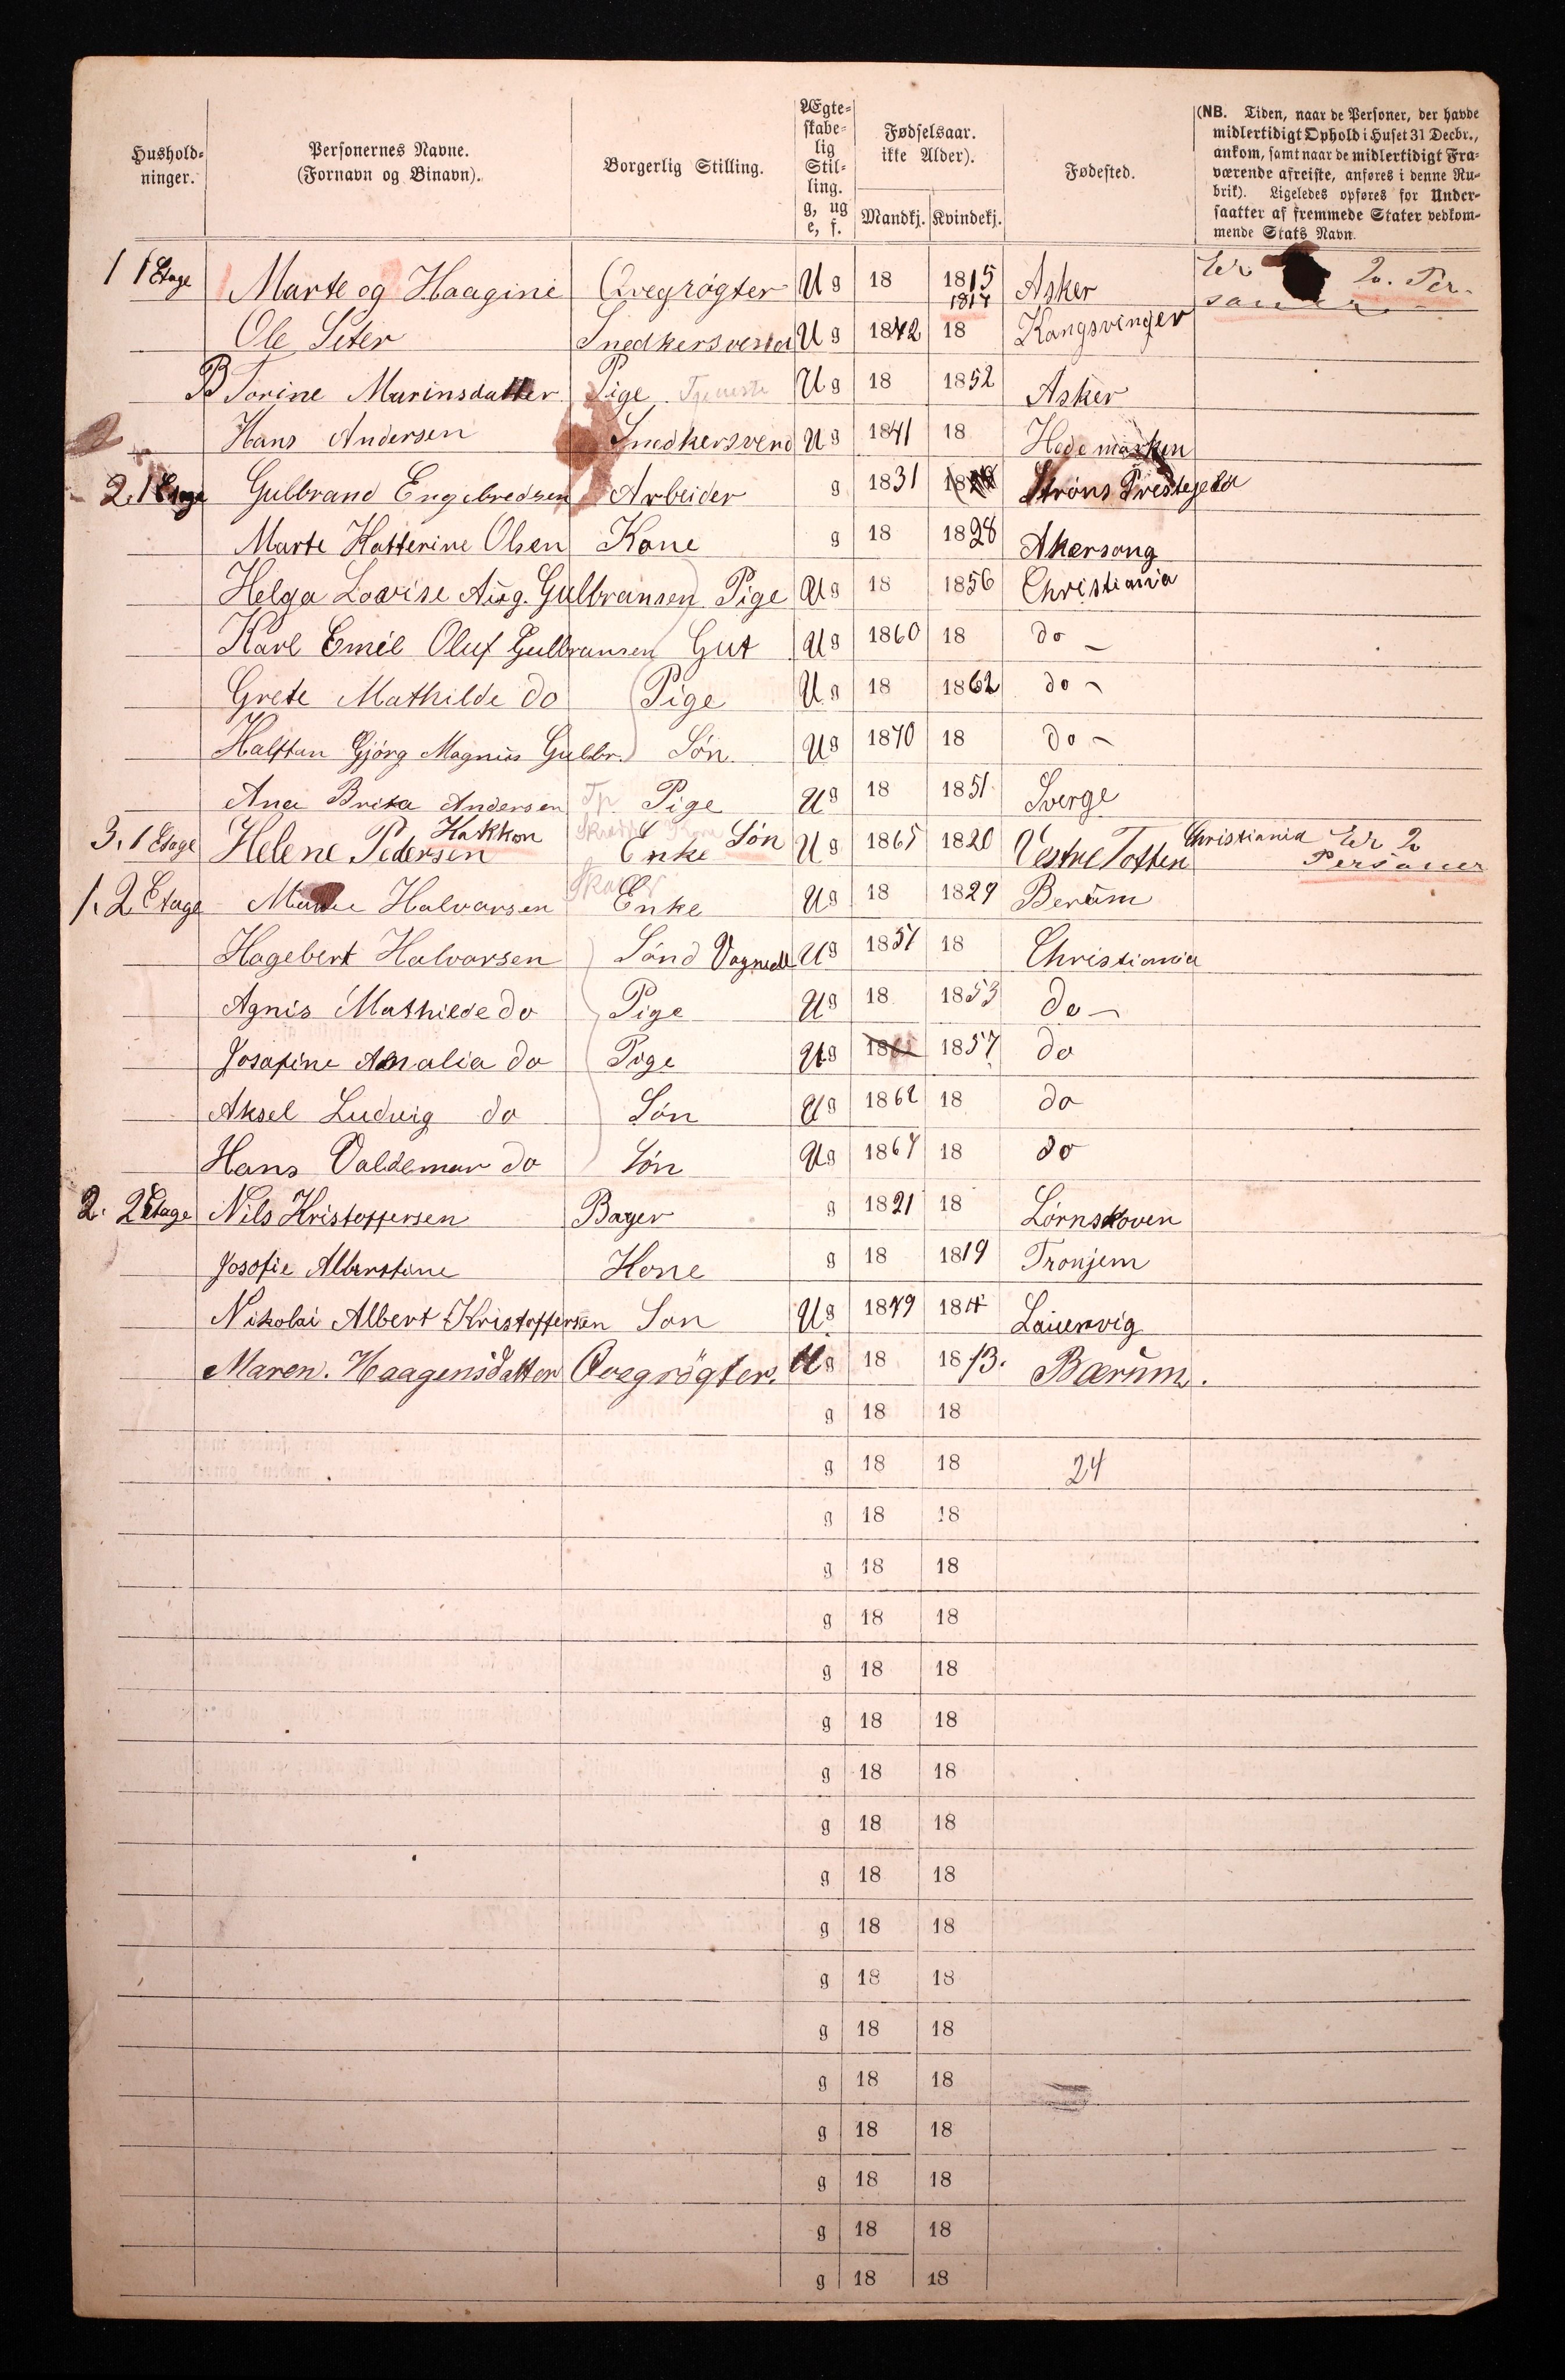 Hushold-
ninger.
Personernes Navne.
(Fornavn og Binavn).
Borgerlig Stilling.
Ægte-
skabe-
lig
Stil-
ling.
g, ug
e, f.
Fødselsaar.
ikke Alder).
Mandkj. Kvindekj.
Fødested.
(NB. Tiden, naar de Personer, der havde
midlertidigt Ophold i Huset 31 Decbr.,
ankom, samt naar de midlertidigt Fra-
værende afreiste, anføres i denne Ru-
brik). Ligeledes opføres for Under-
saatter af fremmede Stater vedkom-
mende Stats Navn.
1 1 Etage Marte og Haagine Qvegrøgter U g 18 1815 1817 Asker Er 2. Per-
soner
Ole Seter Snedkersvend U g 1842 18 Kongsvinger
B Torine Marinsdatter Pige Tjeneste U g 18 1852 Asker
Hans Andersen Snedkersvend U g 1841 18 Hedemarken
2. 1 Etage Gulbrand Engebredsen Arbeider g 1831 18 Strøns Prestegeld
Marte Katterine Olsen Kone g 18 1828 Akersong
Helga Lovise Aug. Gulbransen Pige U g 18 1856 Christiania
Karl Emil Oluf Gulbransen Gut U g 1860 18 do
Grete Mathilde do Pige U g 18 1862 do
Halftan Gjörg Magnus Gulbr. Søn U g 1870 18 do
Ana Brita Andersen Tp Pige U g 18 1851 Sverge
3. 1 Etage Helene Pedersen Hakkon Enke Søn U g 1865 1820 Vestre Totten Christiania Er 2
Personer
1. 2 Etage Halvorsen Enke U g 18 1829 Berum
Hagebert Halvorsen Sønd U g 1851 18 Christiania
Agnis Mathilde do Pige U g 18 1853 do
Josafine Amalia do Pige U g 18 1857 do
Aksel Ludvig do Søn U g 1862 18 do
Hans Valdemar do Søn U g 1867 18 do
2. 2 Etage Nils Kristoffersen Bager g 1821 18 Lørnskoven
Josofie Alberstine Kone g 18 1819 Tronjem
Nikolai Albert Kristoffersen Søn U g 1849 18 Lauervig
Maren. Haagensdatter Qvegrögter. U g 18 1813. Bærum.
g 18 18
g 18 18 24
g 18 18
g 18 18
g 18 18
g 18 18
g 18 18
g 18 18
g 18 18
g 18 18
g 18 18
g 18 18
g 18 18
g 18 18
g 18 18
g 18 18
g 18 18
g 18 18